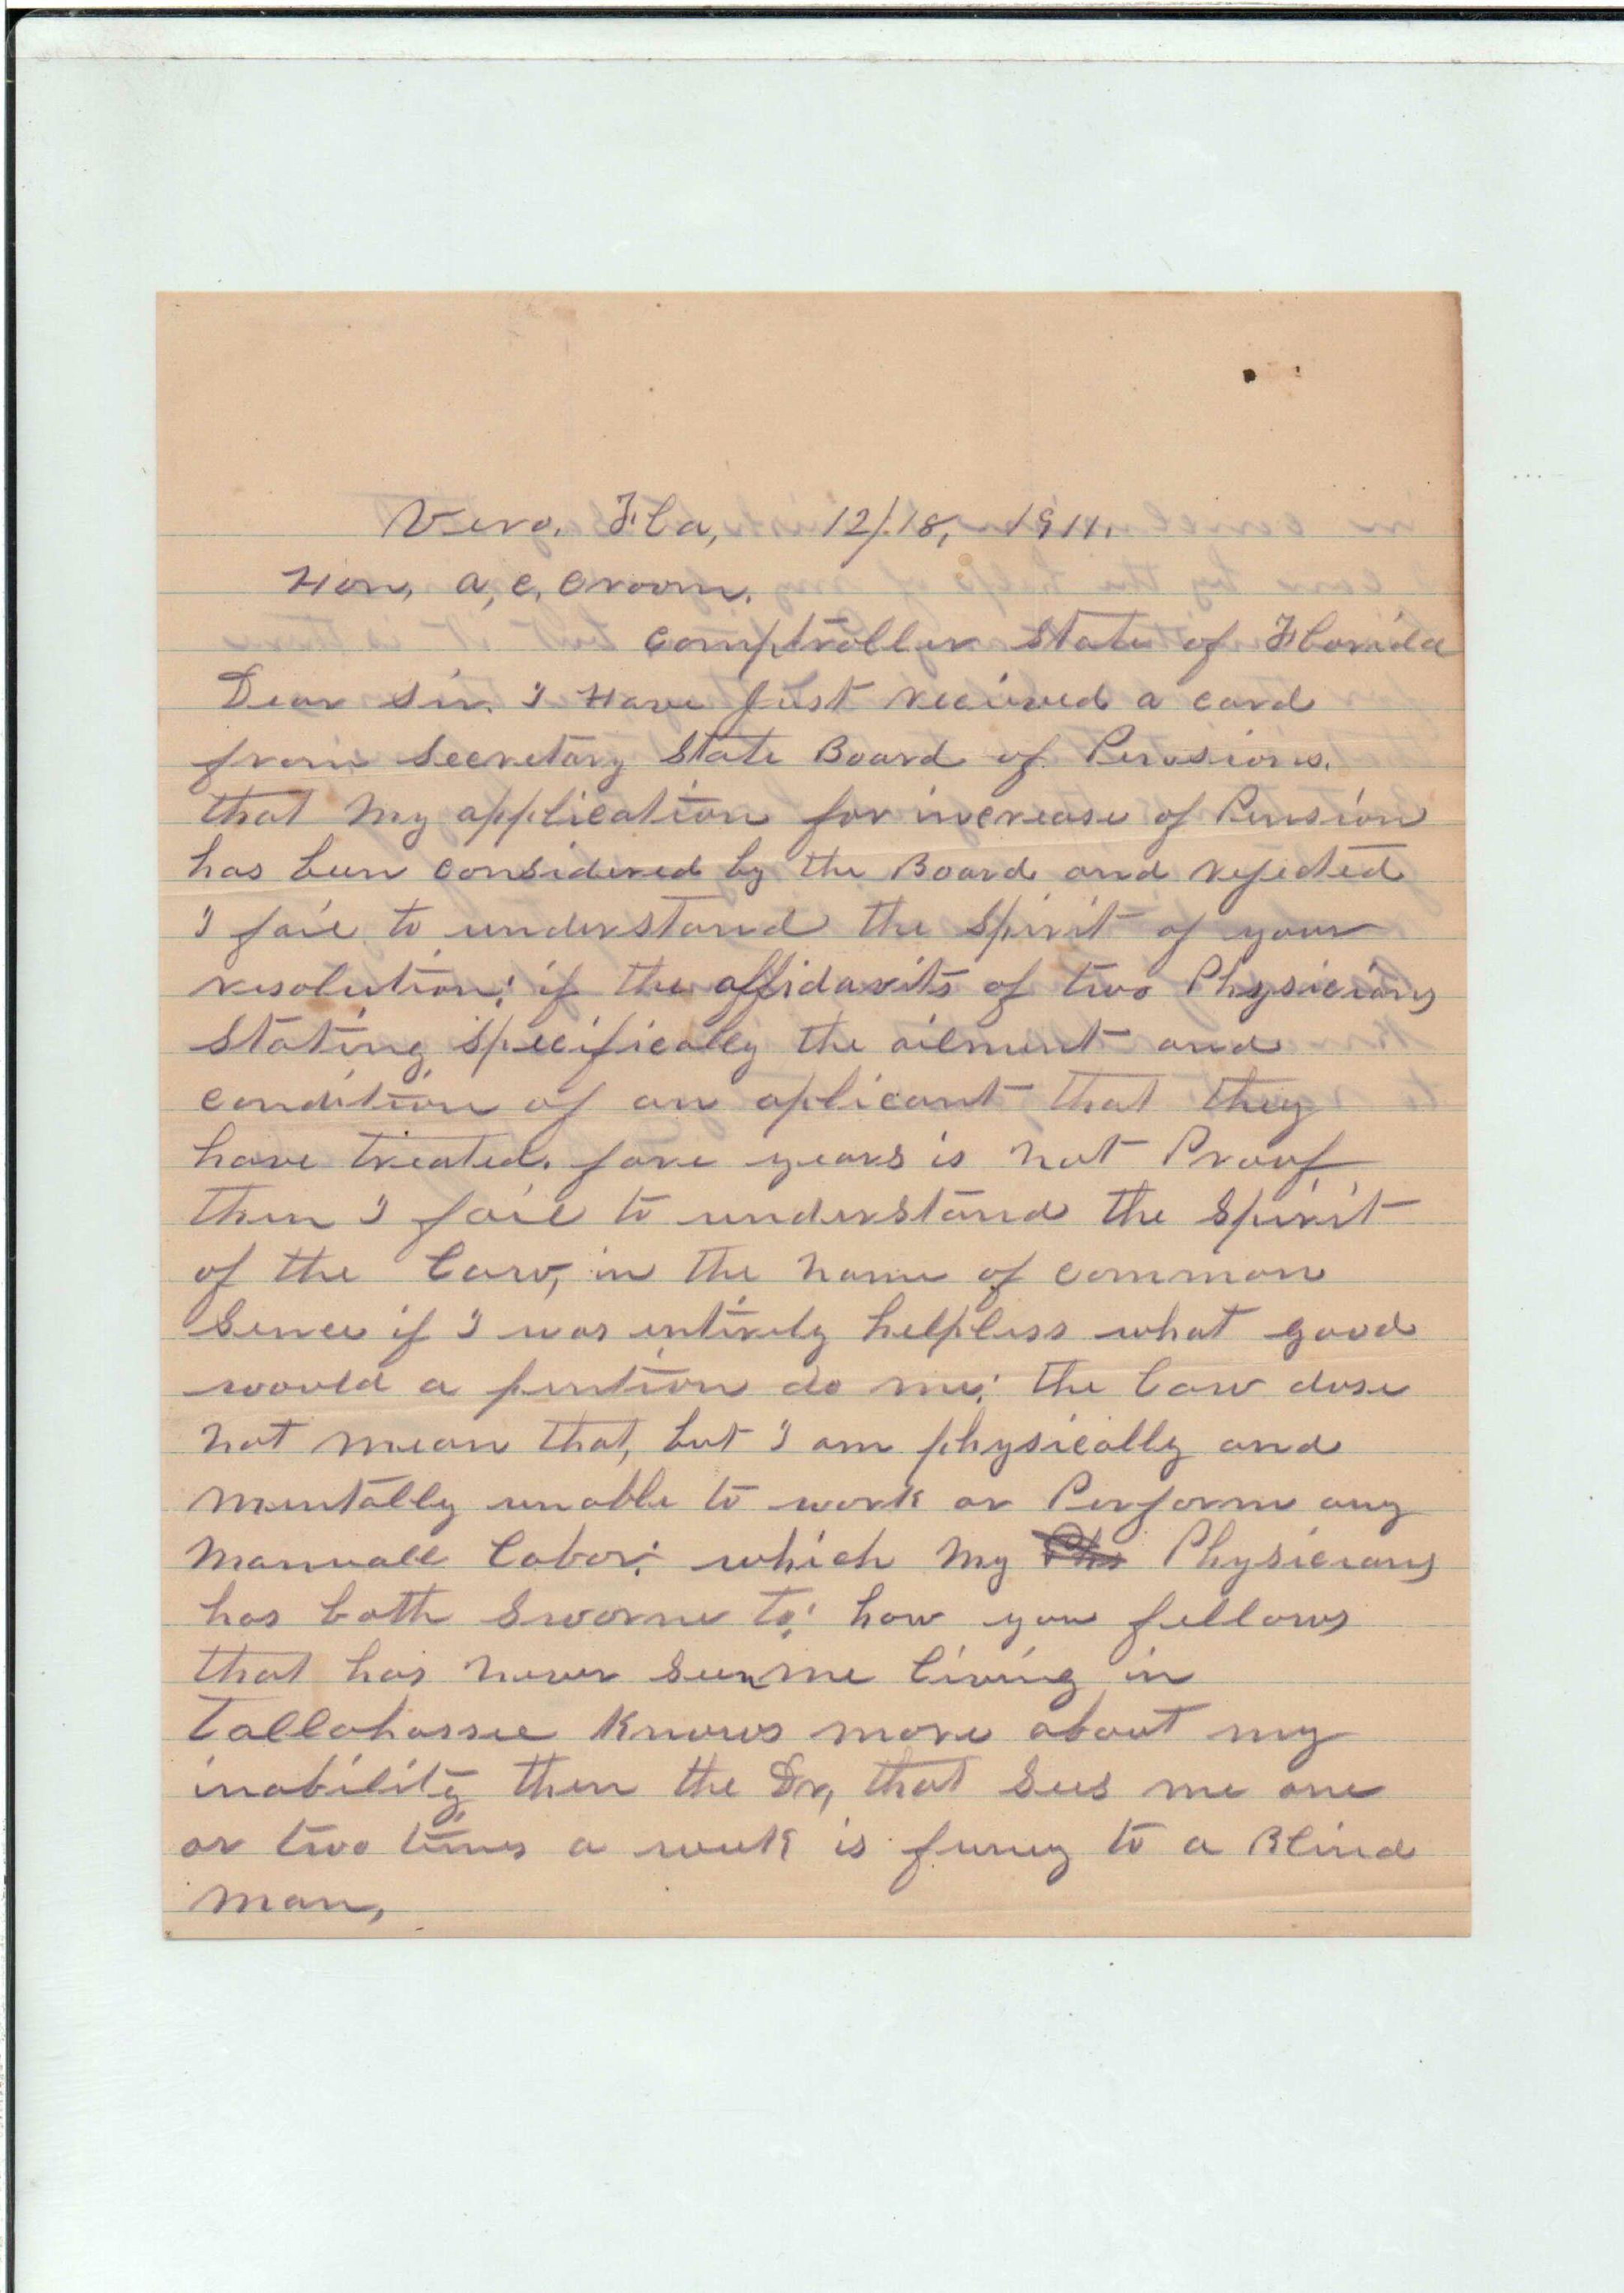 Vero. Fla, 12/.18, 1911.
Hon, A, C, Croom.
Comptroller State of Florida
Dear Sir. I Have just recieved a card
from Secretary State Board of Pensions.
that My application for increase of Pension
has been considered by the Board and rejected
I faie to understand the Spirit of your
resolution; if the affidavits of two Physicians
Stating specifically the ailment and
condition of an aplicant that they
have treated. fore years is not Proof
then I faie to understand the Spirit
of the Law, in the name of common
Sence if I was entirely helpless what good
woould a pention do me; the Law dose
not mean that, but I am physically and
Mentally unable to work or Perform any
Manuall Labor; which My Phs Physicians
has both Sworne to; how you fellows
that has never seen me living in
Tallahassee Knows more about my
inability then the Dr, that Sees me one
or two times a week is funey to a Blind
Man,